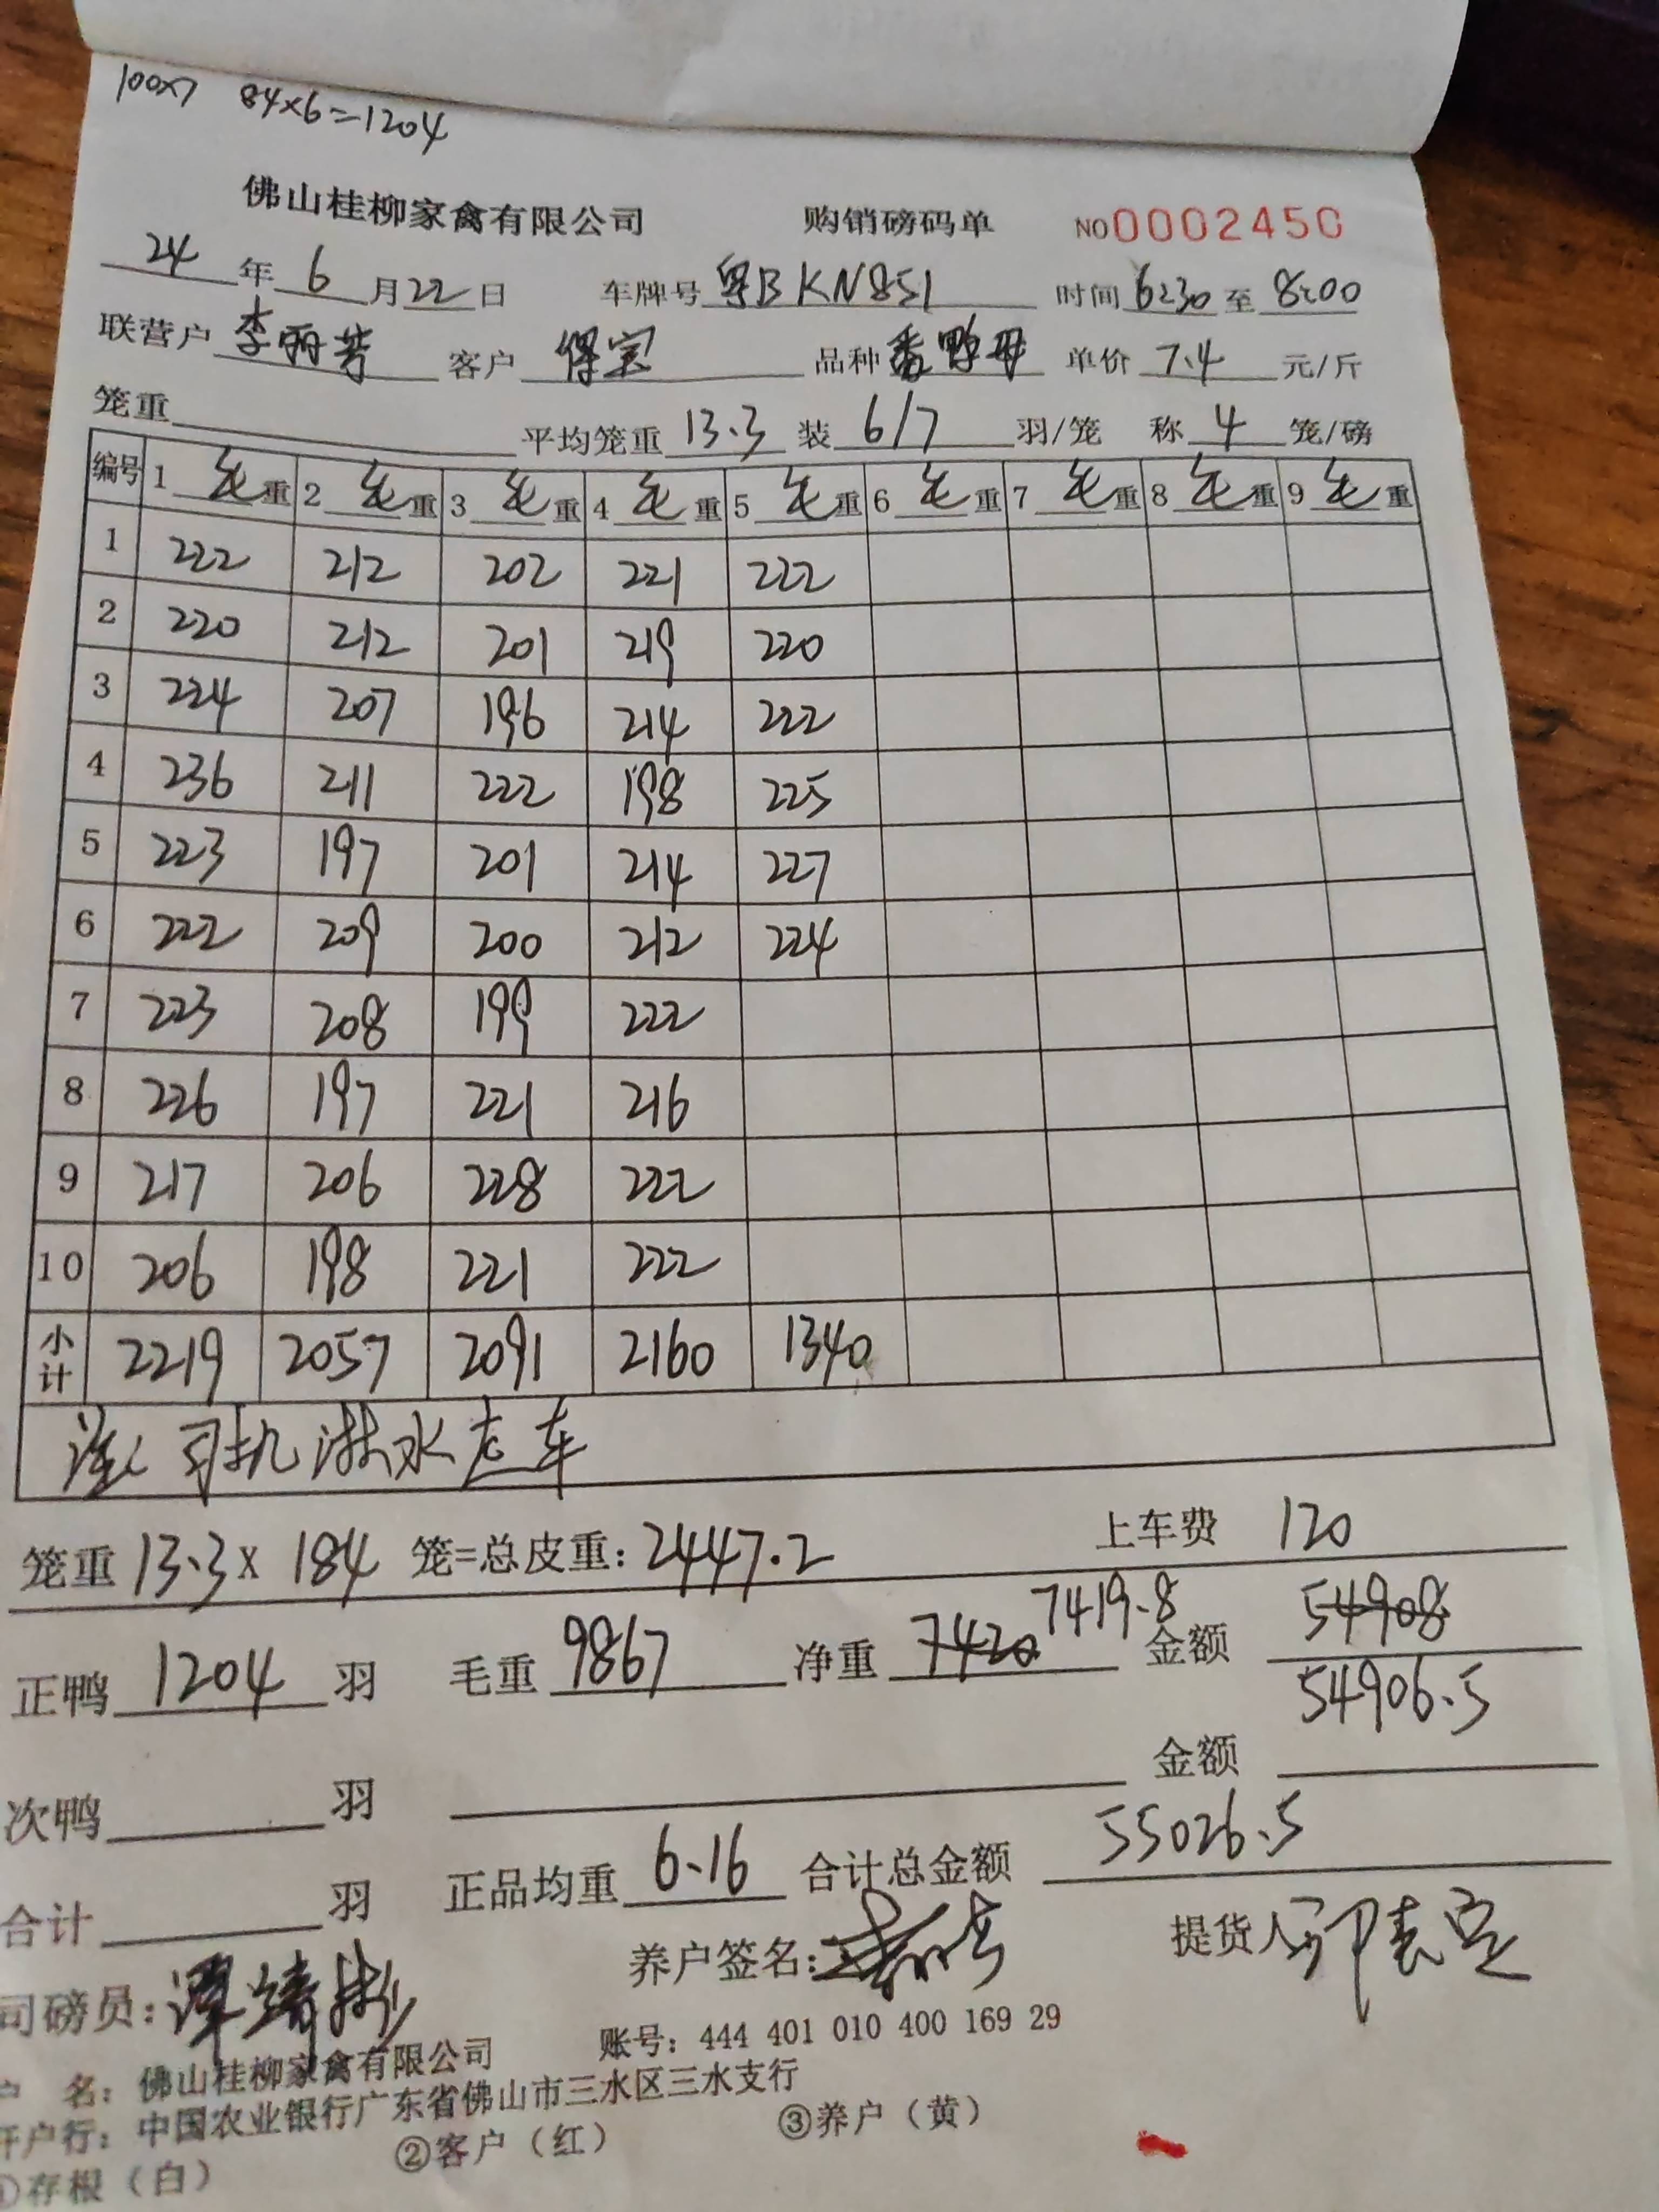 100×7 84×6=1204
佛山桂柳家禽有限公司 购销磅码单 NO0002450
24年6月22日 车牌号 粤B KN851 时间 6:30 至 8:00
联营户 李丽芳 客户 保宝 品种 番鸭母 单价 7.4 元/斤
笼重 平均笼重 13.3 装 6/7 羽/笼 称 4 笼/磅
编号 1 毛重 2 毛重 3 毛重 4 毛重 5 毛重 6 毛重 7 毛重 8 毛重 9 毛重
1 222 212 202 221 222
2 220 212 201 219 220
3 224 207 196 214 222
4 236 211 222 198 225
5 223 197 201 214 227
6 222 209 200 212 224
7 223 208 199 222
8 226 197 221 216
9 217 206 228 222
10 206 198 221 222
小计 2219 2057 2091 2160 1340
司机淋水走车
笼重 13.3× 184 笼=总皮重: 2447.2 上车费 120
正鸭 1204 羽 毛重 9867 净重 7420 7419.8 金额 54908
54906.5
次鸭 羽 金额
合计 羽 正品均重 6.16 合计总金额 55026.5
司磅员: 养户签名: 提货人
户 名: 佛山桂柳家禽有限公司 账号: 444 401 010 400 169 29
开户行: 中国农业银行广东省佛山市三水区三水支行
①存根（白） ②客户（红） ③养户（黄）